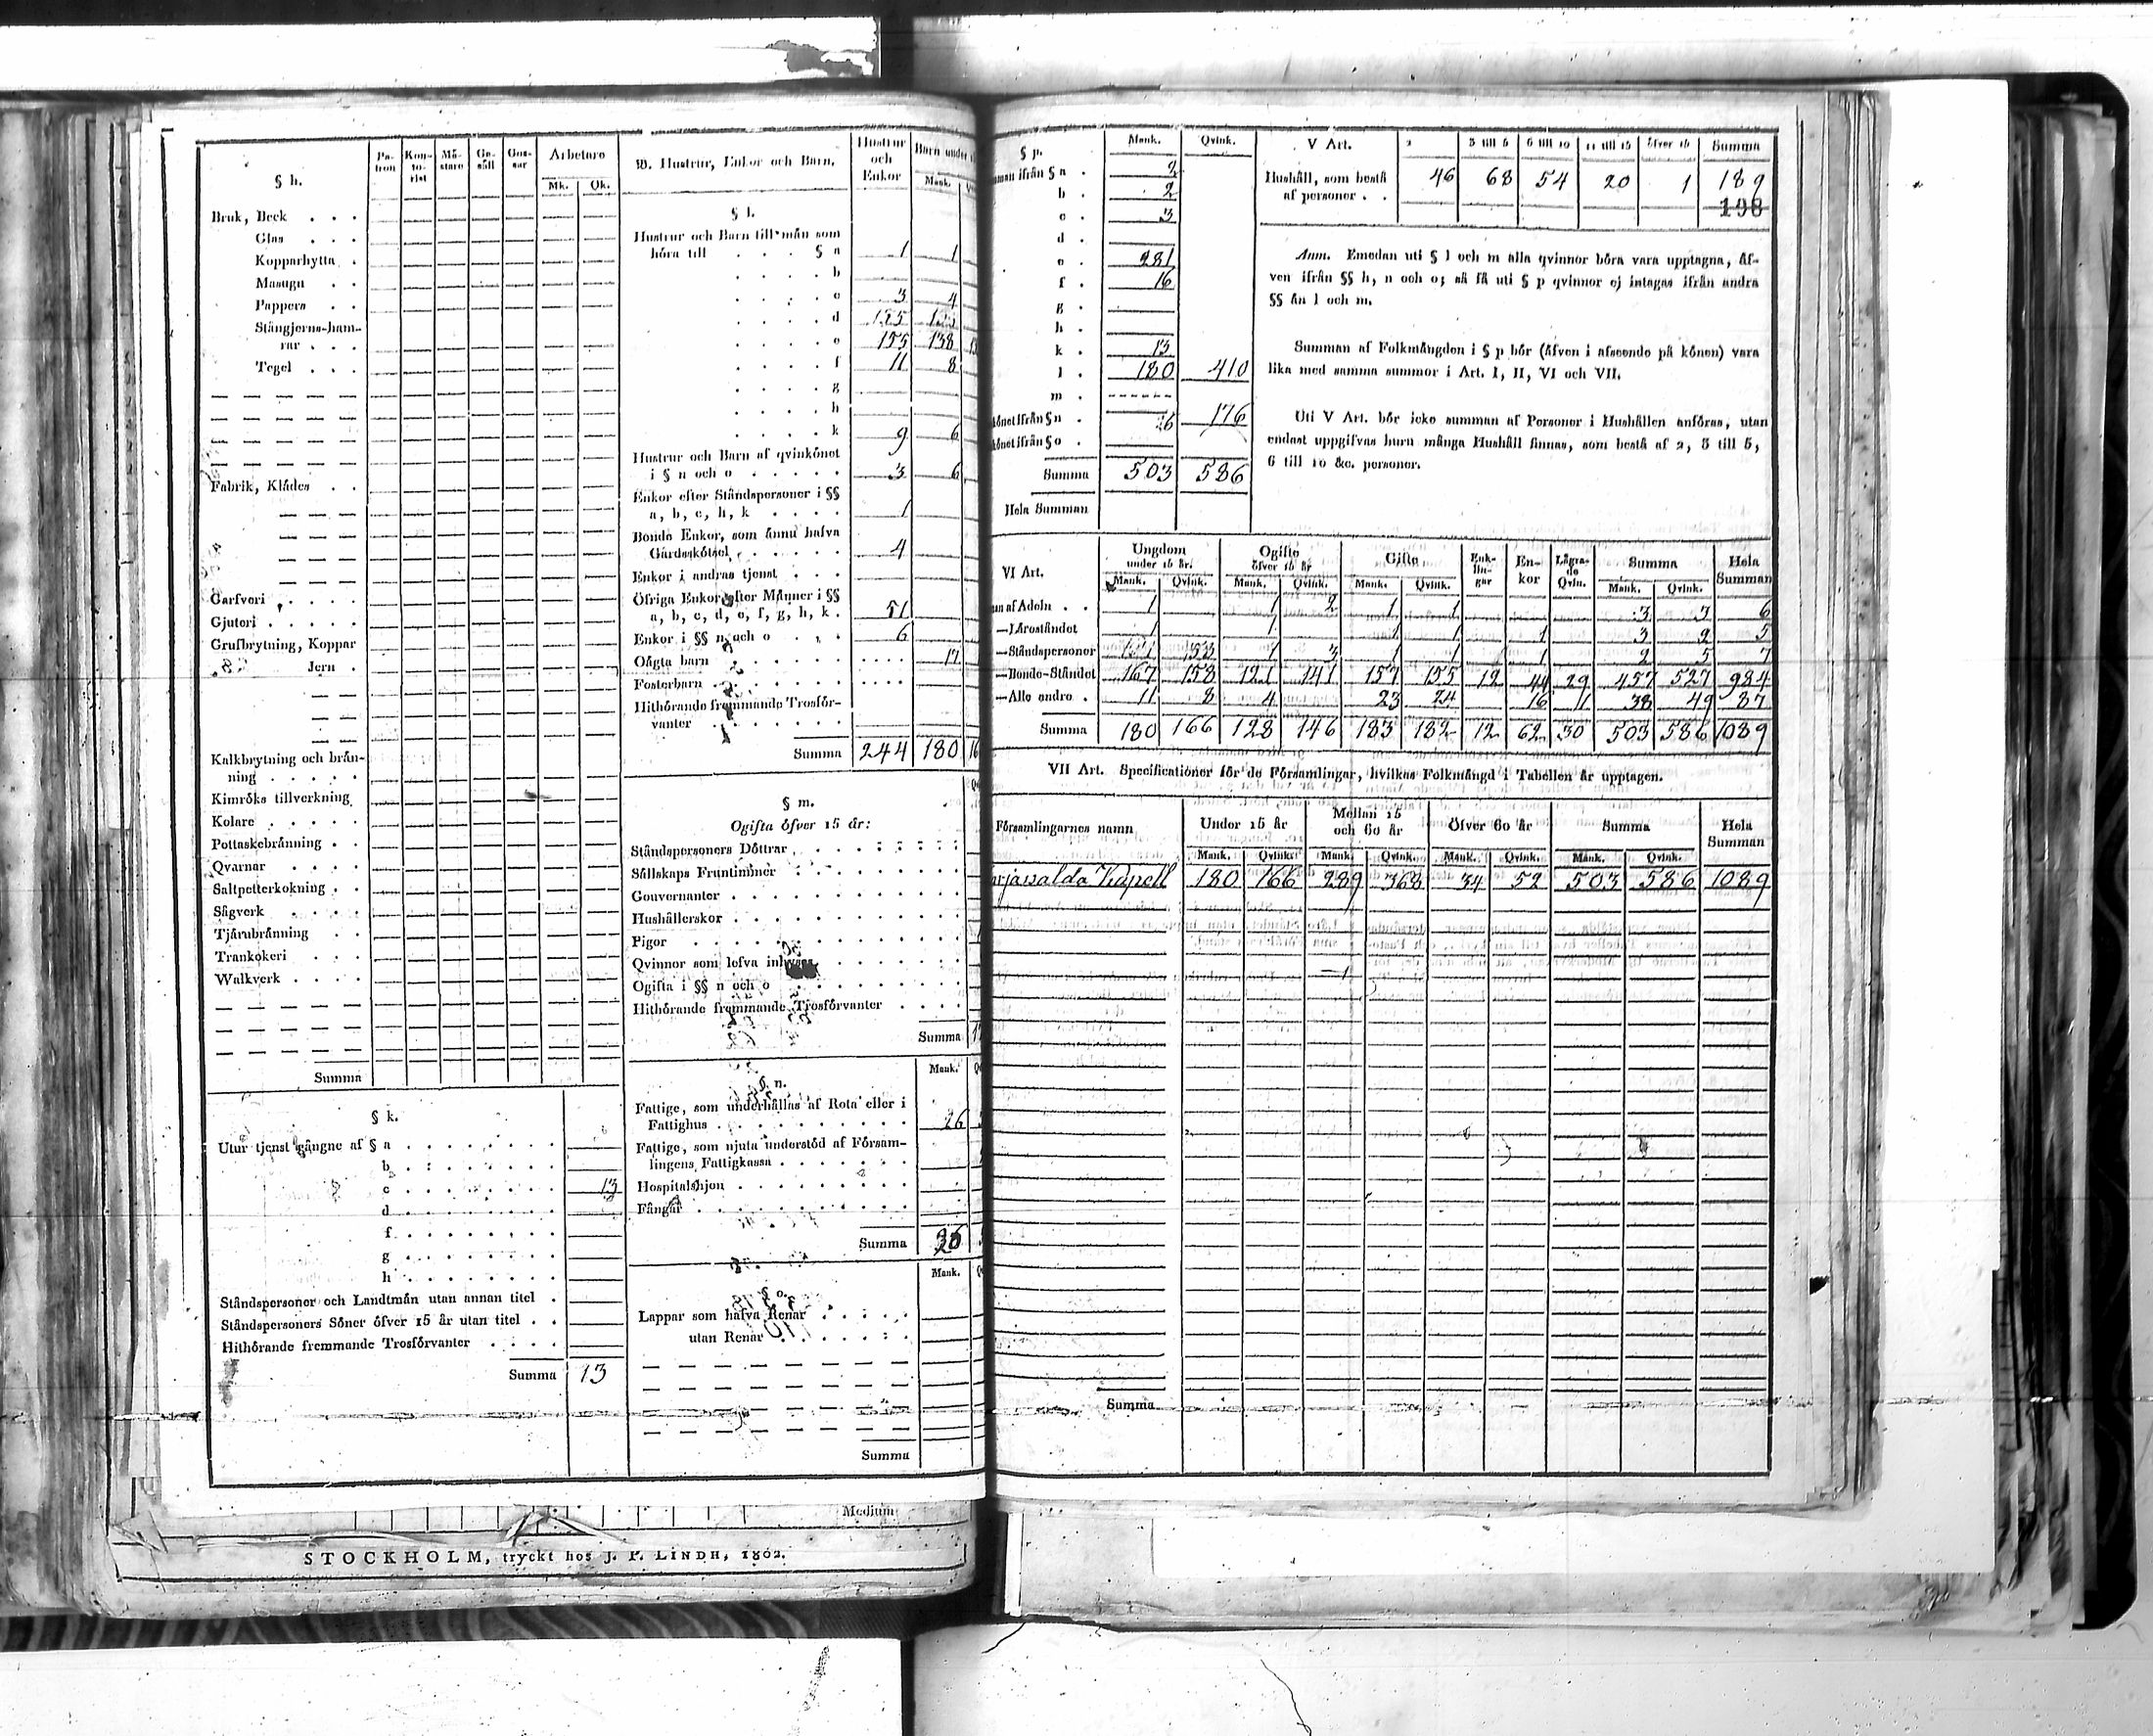 § h.
Pa-tron Kon-to-rist Mä-stare Ge-säll Gos-sar Arbetare
Mk. Qk.
Bruk, Beck . . .
Glas . . .
Kopparhytta .
Masugn . .
Pappers . .
Stångjerns-ham-
rar . . .
Tegel . . .
Fabrik, Klädes . .
Garfveri . . .
Gjuteri . . . . .
Grufbrytning, Koppar
Jern .
Kalkbrytning och brän-
ning . . . . .
Kimröks tillverkning
Kolare . . . . .
Pottaskebränning . .
Qvarnar . . . .
Saltpetterkokning . .
Sågverk . . . .
Tjärubränning . .
Trankokeri . . .
Walkverk . . . .
Summa
§ k.
Utur tjenst gångne af § a . . . . . . .
b . . . . . . .
c . . . . . . . 13
d . . . . . . .
f . . . . . . .
g . . . . . . .
h . . . . . . .
Ståndspersoner och Landtmän utan annan titel .
Ståndspersoners Söner öfver 15 år utan titel . .
Hithörande fremmande Trosförvanter . . . .
Summa 13
Hustrur, Enkor och Barn. Hustrur och Enkor Barn under
Mank.
§ l.
Hustrur och Barn till män som
höra till . . . § a 1 1
. . . . b
. . . . c 3 4
. . . . d
. . . . e 155 138
. . . . f 11 8
. . . . g
. . . . h
. . . . k 9 6
Hustrur och Barn af qvinkönet
i § n och o . . . . . 3 6
Enkor efter Ståndspersoner i §§
a, b, c, h, k . . . . 1
Bonde Enkor, som ännu hafva
Gårdsskötsel . . . . . . 4
Enkor i andras tjenst . . .
Öfriga Enkor efter Männer i §§
a, b, c, d, e, f, g, h, k . 51
Enkor i §§ n och o . . . 6
Oägta barn . . . . . . . . . . . 17
Fosterbarn . . . . . . . . . . .
Hithörande fremmande Trosför-
vanter . . . . . .
Summa 244 180
§ m.
Ogifta öfver 15 år:
Ståndspersoners Döttrar . . . . . . .
Sällskaps Fruntimmer . . . . . . .
Gouvernanter . . . . . . . . . .
Hushållerskor . . . . . . . . . .
Pigor . . . . . . . . . . .
Qvinnor som lefva inhyses . . . . . .
Ogifta i §§ n och o . . . . . . .
Hithörande fremmande Trosförvanter . . . .
Summa
Mank.
§ n.
Fattige, som underhållas af Rota eller i
Fattighus . . . . . . . . . 26
Fattige, som njuta understöd af Försam-
lingens Fattigkassa . . . . . .
Hospitalshjon . . . . . . . .
Fångar . . . . . . . . . .
Summa 26
Mank.
§ o.
Lappar som hafva Renar . . . . .
utan Renar . . . . . .
Summa
Medium
STOCKHOLM, tryckt hos J. P. LINDH, 1802.
§ p. Mank. Qvink.
man ifrån § a . 2
b . 2
c . 3
d .
e . 281
f . 16
g .
h .
k . 13
l . 180 410
m . - - - - - -
könet ifrån § n . 6 176
könet ifrån § o .
Summa 503 586
Hela Summan
V Art. 2 3 till 5 6 till 10 11 till 15 öfver 15 Summa
Hushåll, som bestå 46 68 54 20 1 189
af personer . . 198
Anm. Emedan uti § l och m alla qvinnor böra vara upptagna, äf-
ven ifrån §§ h, n och o; så få uti § p qvinnor ej intagas ifrån andra
§§ än l och m.
Summan af Folkmängden i § p bör (äfven i afseende på könen) vara
lika med samma summor i Art. I, II, VI och VII.
Uti V Art. bör icke summan af Personer i Hushållen anföras, utan
endast uppgifvas huru många Hushåll finnas, som bestå af 2, 3 till 5,
6 till 10 &c. personer.
VI Art. Ungdom under 15 år. Ogifte öfver 15 år Gifte Enk-lin-gar En-kor Lägra-de Qvin. Summa Hela Summan
Mank. Qvink. Mank. Qvink. Mank. Qvink. Mank. Qvink.
an af Adeln . . 1 1 2 1 1 3 3 6
—Läroståndet 1 1 1 1 1 3 2 5
—Ståndspersoner 1 3 1 1 1 1 2 5 7
—Bonde-Ståndet 167 158 121 141 157 155 12 44 29 457 527 984
—Alle andre . 11 8 4 23 24 16 11 38 49 87
Summa 180 166 128 146 183 182 12 62 30 503 586 1089
VII Art. Specificationer för de Församlingar, hvilkas Folkmängd i Tabellen är upptagen.
Församlingarnes namn Under 15 år Mellan 15 och 60 år Öfver 60 år Summa Hela Summan
Mank. Qvink. Mank. Qvink. Mank. Qvink. Mank. Qvink.
Kapell 180 166 289 368 34 52 503 586 1089
Summa